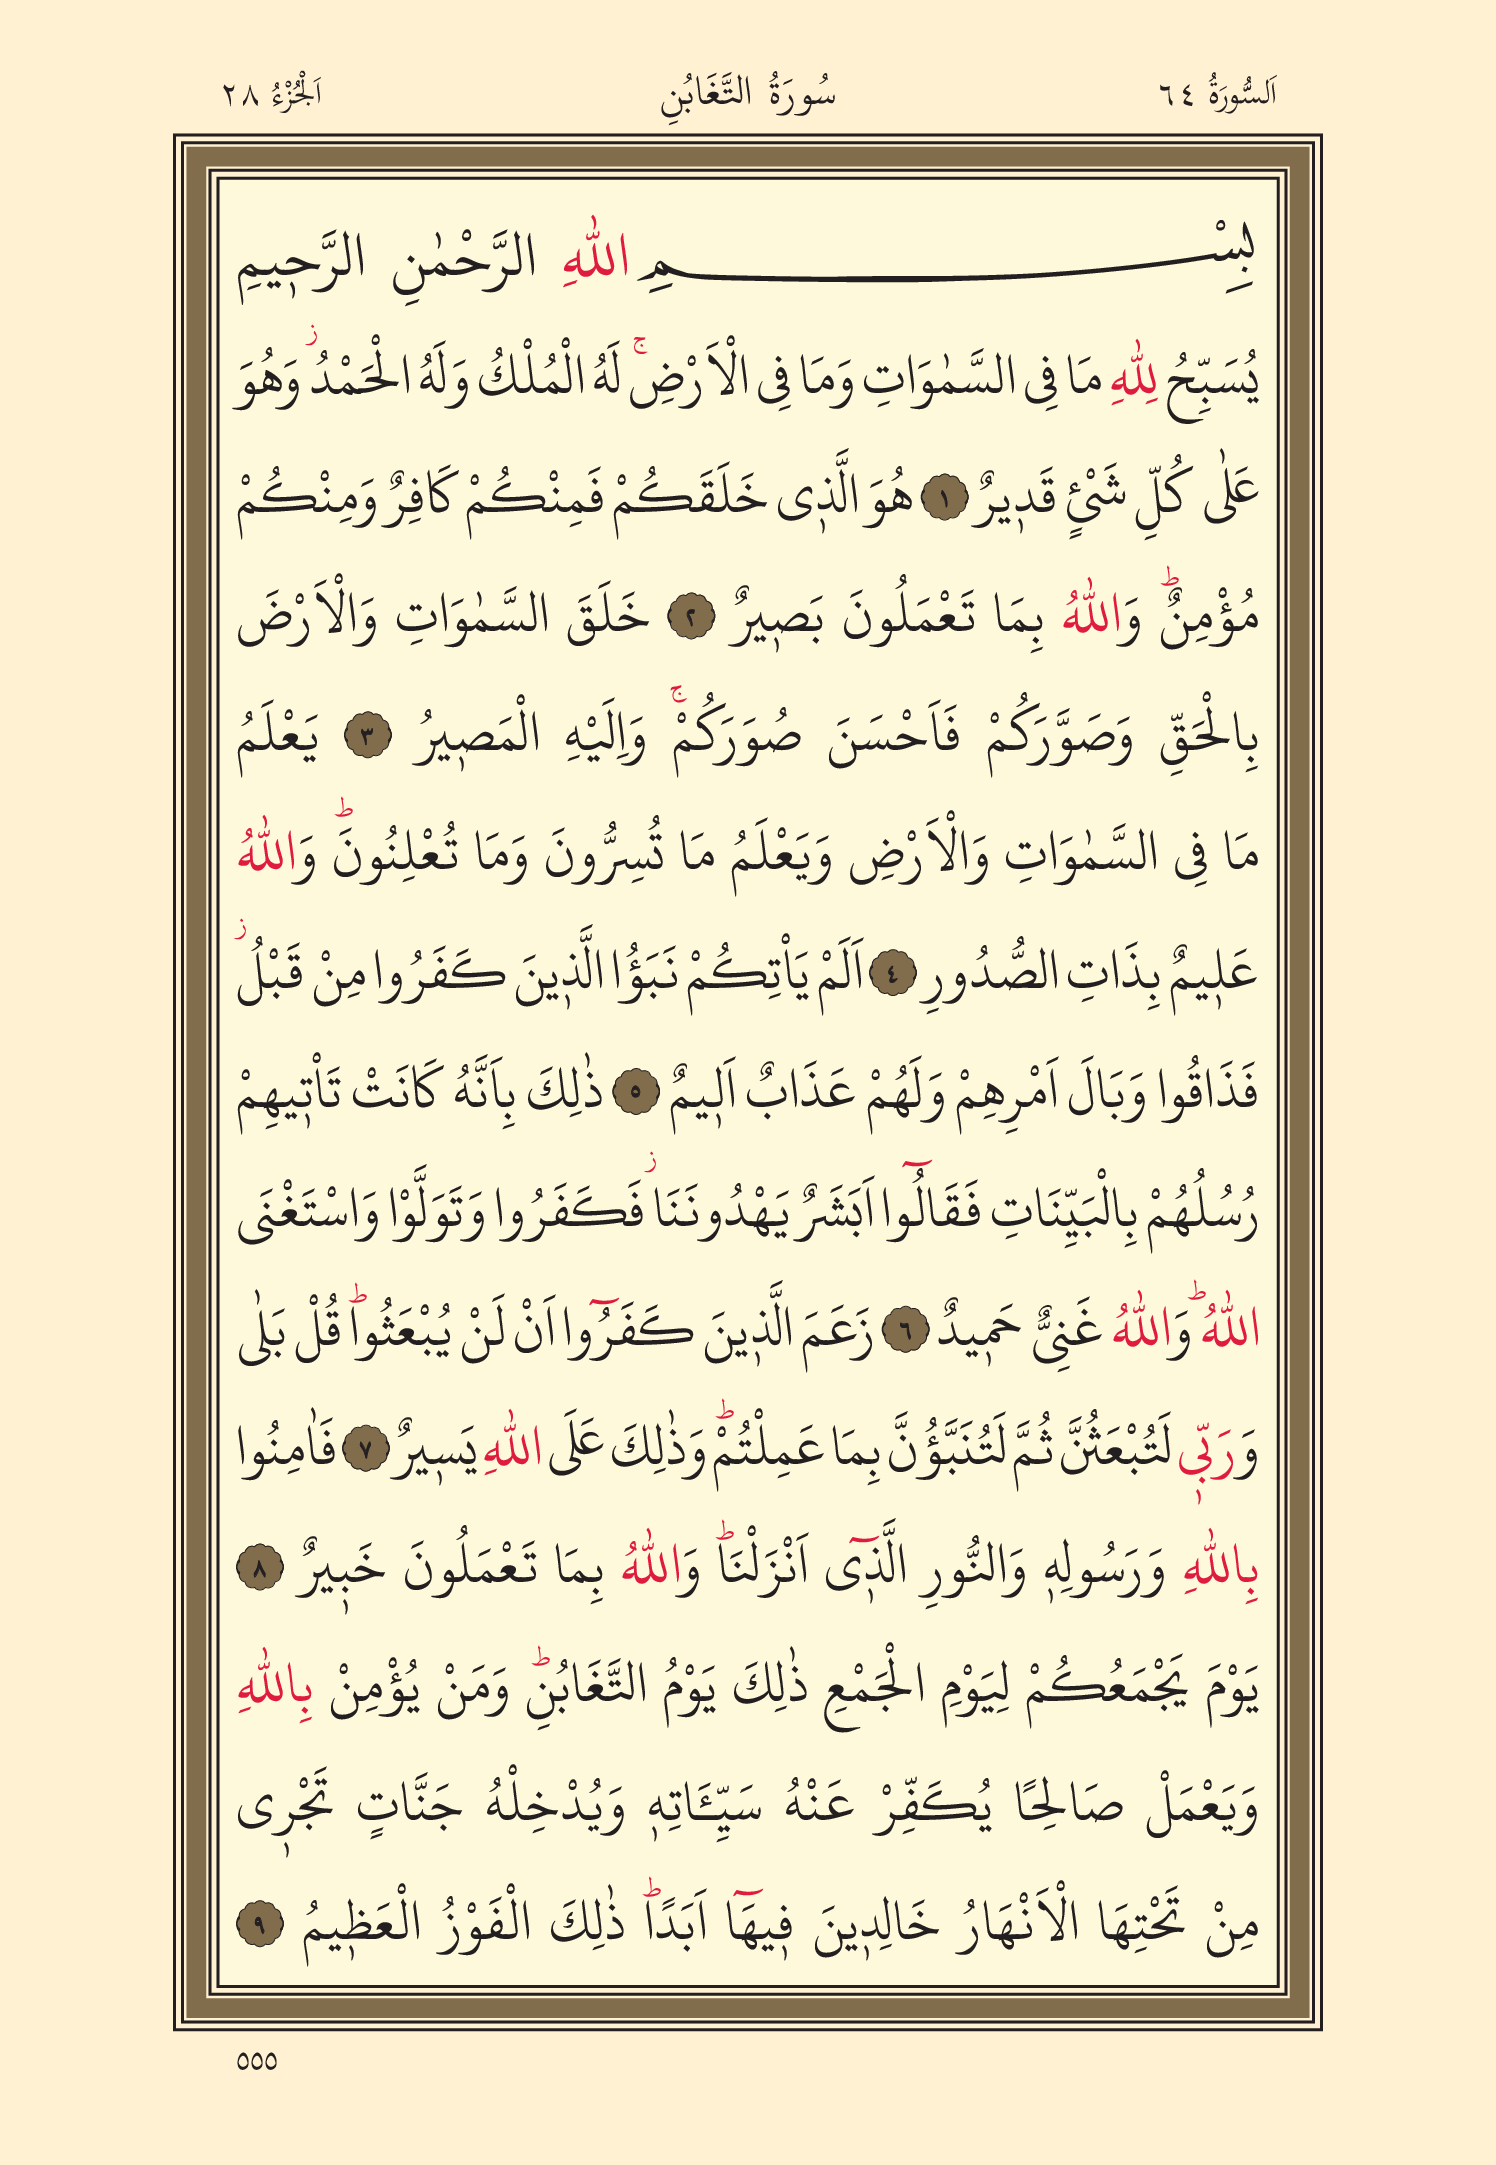 اَلسُّورَةُ ٦٤ سُورَةُ التَّغَابُنِ اَلْجُزْءُ ٢٨
بِسْمِ اللّٰهِ الرَّحْمٰنِ الرَّح۪يمِ
يُسَبِّحُ لِلّٰهِ مَا فِى السَّمٰوَاتِ وَمَا فِى الْاَرْضِۚ لَهُ الْمُلْكُ وَلَهُ الْحَمْدُؗ وَهُوَ
عَلٰى كُلِّ شَىْءٍ قَد۪يرٌ ﴿١﴾ هُوَ الَّذ۪ى خَلَقَكُمْ فَمِنْكُمْ كَافِرٌ وَمِنْكُمْ
مُؤْمِنٌؕ وَاللّٰهُ بِمَا تَعْمَلُونَ بَص۪يرٌ ﴿٢﴾ خَلَقَ السَّمٰوَاتِ وَالْاَرْضَ
بِالْحَقِّ وَصَوَّرَكُمْ فَاَحْسَنَ صُوَرَكُمْۚ وَاِلَيْهِ الْمَص۪يرُ ﴿٣﴾ يَعْلَمُ
مَا فِى السَّمٰوَاتِ وَالْاَرْضِ وَيَعْلَمُ مَا تُسِرُّونَ وَمَا تُعْلِنُونَؕ وَاللّٰهُ
عَل۪يمٌ بِذَاتِ الصُّدُورِ ﴿٤﴾ اَلَمْ يَاْتِكُمْ نَبَؤُا الَّذ۪ينَ كَفَرُوا مِنْ قَبْلُؗ
فَذَاقُوا وَبَالَ اَمْرِهِمْ وَلَهُمْ عَذَابٌ اَل۪يمٌ ﴿٥﴾ ذٰلِكَ بِاَنَّهُ كَانَتْ تَاْت۪يهِمْ
رُسُلُهُمْ بِالْبَيِّنَاتِ فَقَالُٓوا اَبَشَرٌ يَهْدُونَنَاؗ فَكَفَرُوا وَتَوَلَّوْا وَاسْتَغْنَى
اللّٰهُؕ وَاللّٰهُ غَنِىٌّ حَم۪يدٌ ﴿٦﴾ زَعَمَ الَّذ۪ينَ كَفَرُٓوا اَنْ لَنْ يُبْعَثُواؕ قُلْ بَلٰى
وَرَبّ۪ى لَتُبْعَثُنَّ ثُمَّ لَتُنَبَّؤُنَّ بِمَا عَمِلْتُمْؕ وَذٰلِكَ عَلَى اللّٰهِ يَس۪يرٌ ﴿٧﴾ فَاٰمِنُوا
بِاللّٰهِ وَرَسُولِه۪ وَالنُّورِ الَّذ۪ٓى اَنْزَلْنَاؕ وَاللّٰهُ بِمَا تَعْمَلُونَ خَب۪يرٌ ﴿٨﴾
يَوْمَ يَجْمَعُكُمْ لِيَوْمِ الْجَمْعِ ذٰلِكَ يَوْمُ التَّغَابُنِؕ وَمَنْ يُؤْمِنْ بِاللّٰهِ
وَيَعْمَلْ صَالِحًا يُكَفِّرْ عَنْهُ سَيِّـَٔاتِه۪ وَيُدْخِلْهُ جَنَّاتٍ تَجْر۪ى
مِنْ تَحْتِهَا الْاَنْهَارُ خَالِد۪ينَ ف۪يهَٓا اَبَدًاؕ ذٰلِكَ الْفَوْزُ الْعَظ۪يمُ ﴿٩﴾
٥٥٥